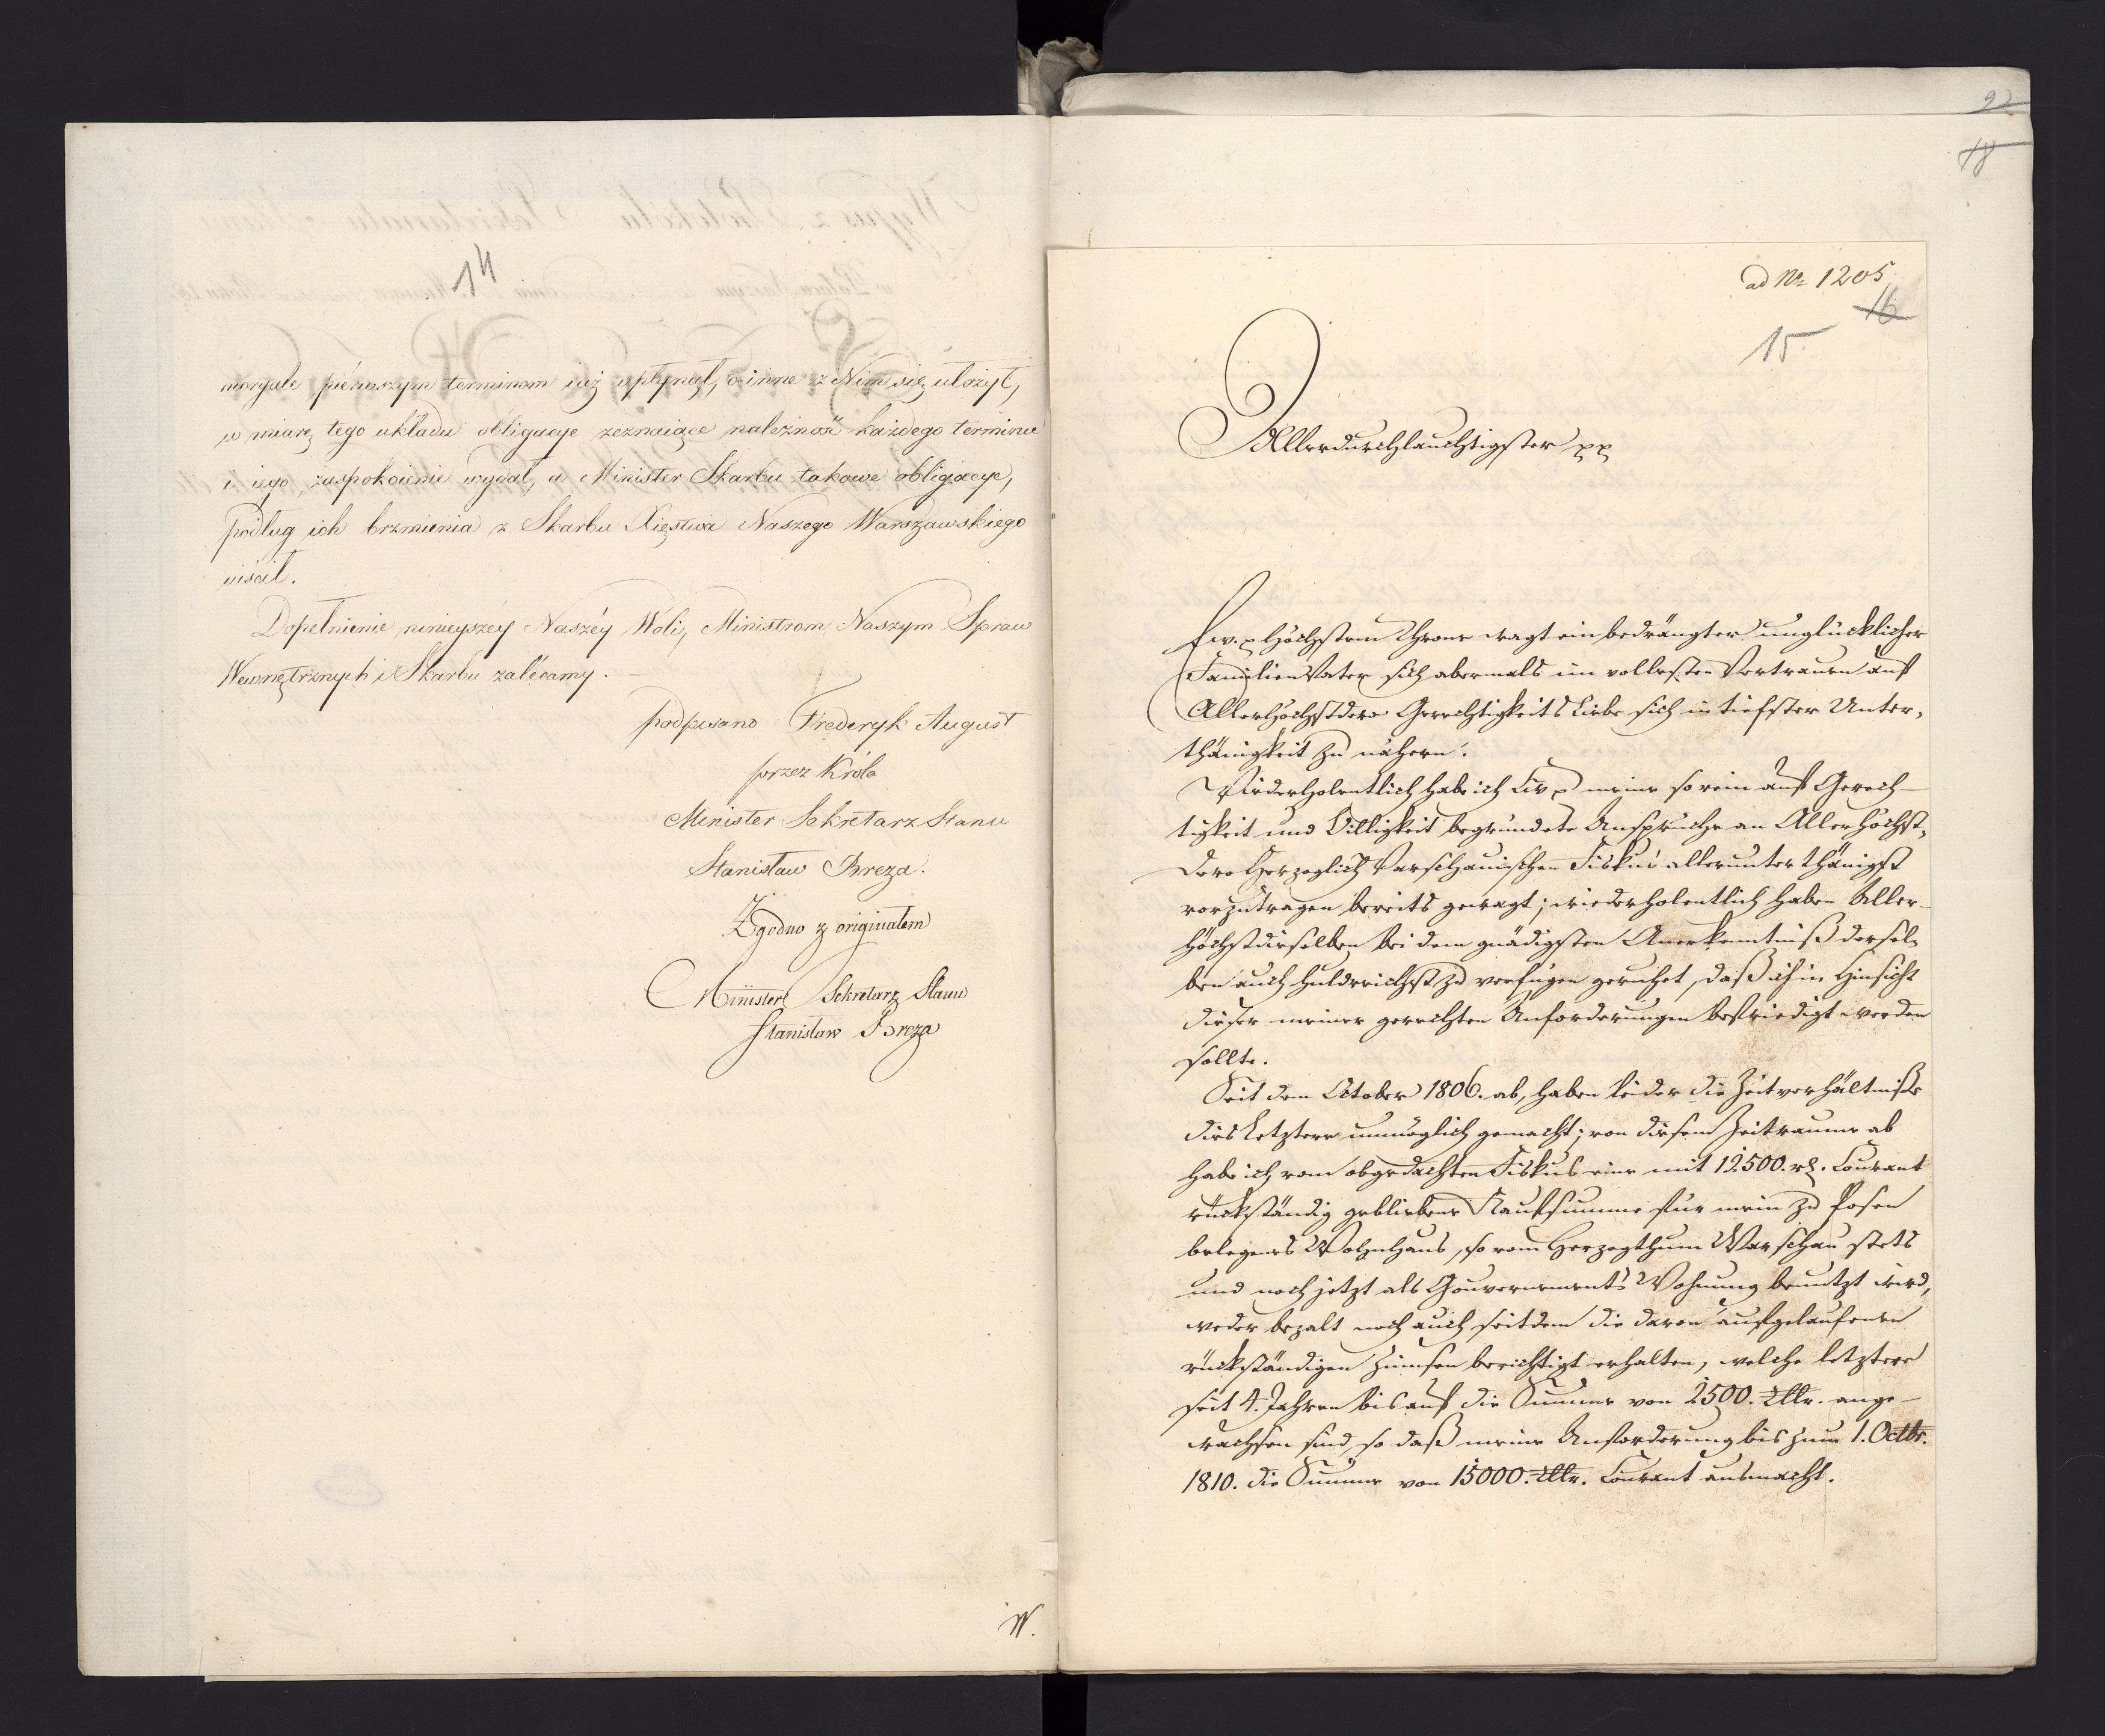 14
moryale piérwszym terminom iuż upłynął, o inne z Nim się ułożył,
w miarę tego układu obligacye zeznaiące należność każdego terminu
i iego zaspokoienie wydał, a Minister Skarbu takowe obligacye,
podług ich brzmienia z Skarbu Xięstwa Naszego Warszawskiego
uiścił.
Dopełnienie ninieyszéy Naszéy Woli, Ministrom Naszym Spraw
Wewnętrznych i Skarbu zalécamy. –
podpisano Frederyk August
przez Króla
Minister Sekretarz Stanu
Stanisław Breza.
Zgodno z originałem
Minister Sekretarz Stanu
Stanisław Breza
W.
92
18
ad No 1205
16
15
Allerdurchlauchtigster pp
Ew. p Höchstem Throne wagt ein bedrängter unglücklicher
Familien Vater sich abermals im vollesten Vertrauen auf
Allerhöchstdero Gerechtigkeits Liebe sich in tiefster Unter-
thänigkeit zu nähern.
Wiederholentlich habe ich Ew p meine so rein auf Gerech-
tigkeit und Billigkeit begründete Ansprüche an Allerhöchst-
dero Herzoglich Warschauischen Fiskus allerunterthänigst
vorzutragen bereits gewagt; wiederholentlich haben Aller-
höchstdieselben bei dem gnädigsten Anerkenntniß dersel-
ben auch huldreichst zu verfügen geruhet, daß ich in Hinsicht
dieser meiner gerechten Anforderungen befriedigt werden
sollte.
Seit dem October 1806. ab, haben leider die Zeitverhältniße
dies Letztere unmöglich gemacht; von diesem Zeitraume ab
habe ich vom obgedachten Fiskus eine mit 12.500. rt. Courant
rückständig gebliebene Kaufsumme für mein zu Posen
belegenes Wohnhaus, so vom Herzogthum Warschau stets
und noch jetzt als Gouvernements Wohnung benutzt wird,
weder bezalt noch auch seitdem die davon aufgelaufenen
rückständigen Zinnsen berichtigt erhalten, welche letztere
seit 4. Jahren bis auf die Summe von 2500. Tllr. ange-
wachsen sind, so daß meine Anforderung bis zum 1. Octbr.
1810. die Summe von 15000. Tllr. Courant ausmacht.